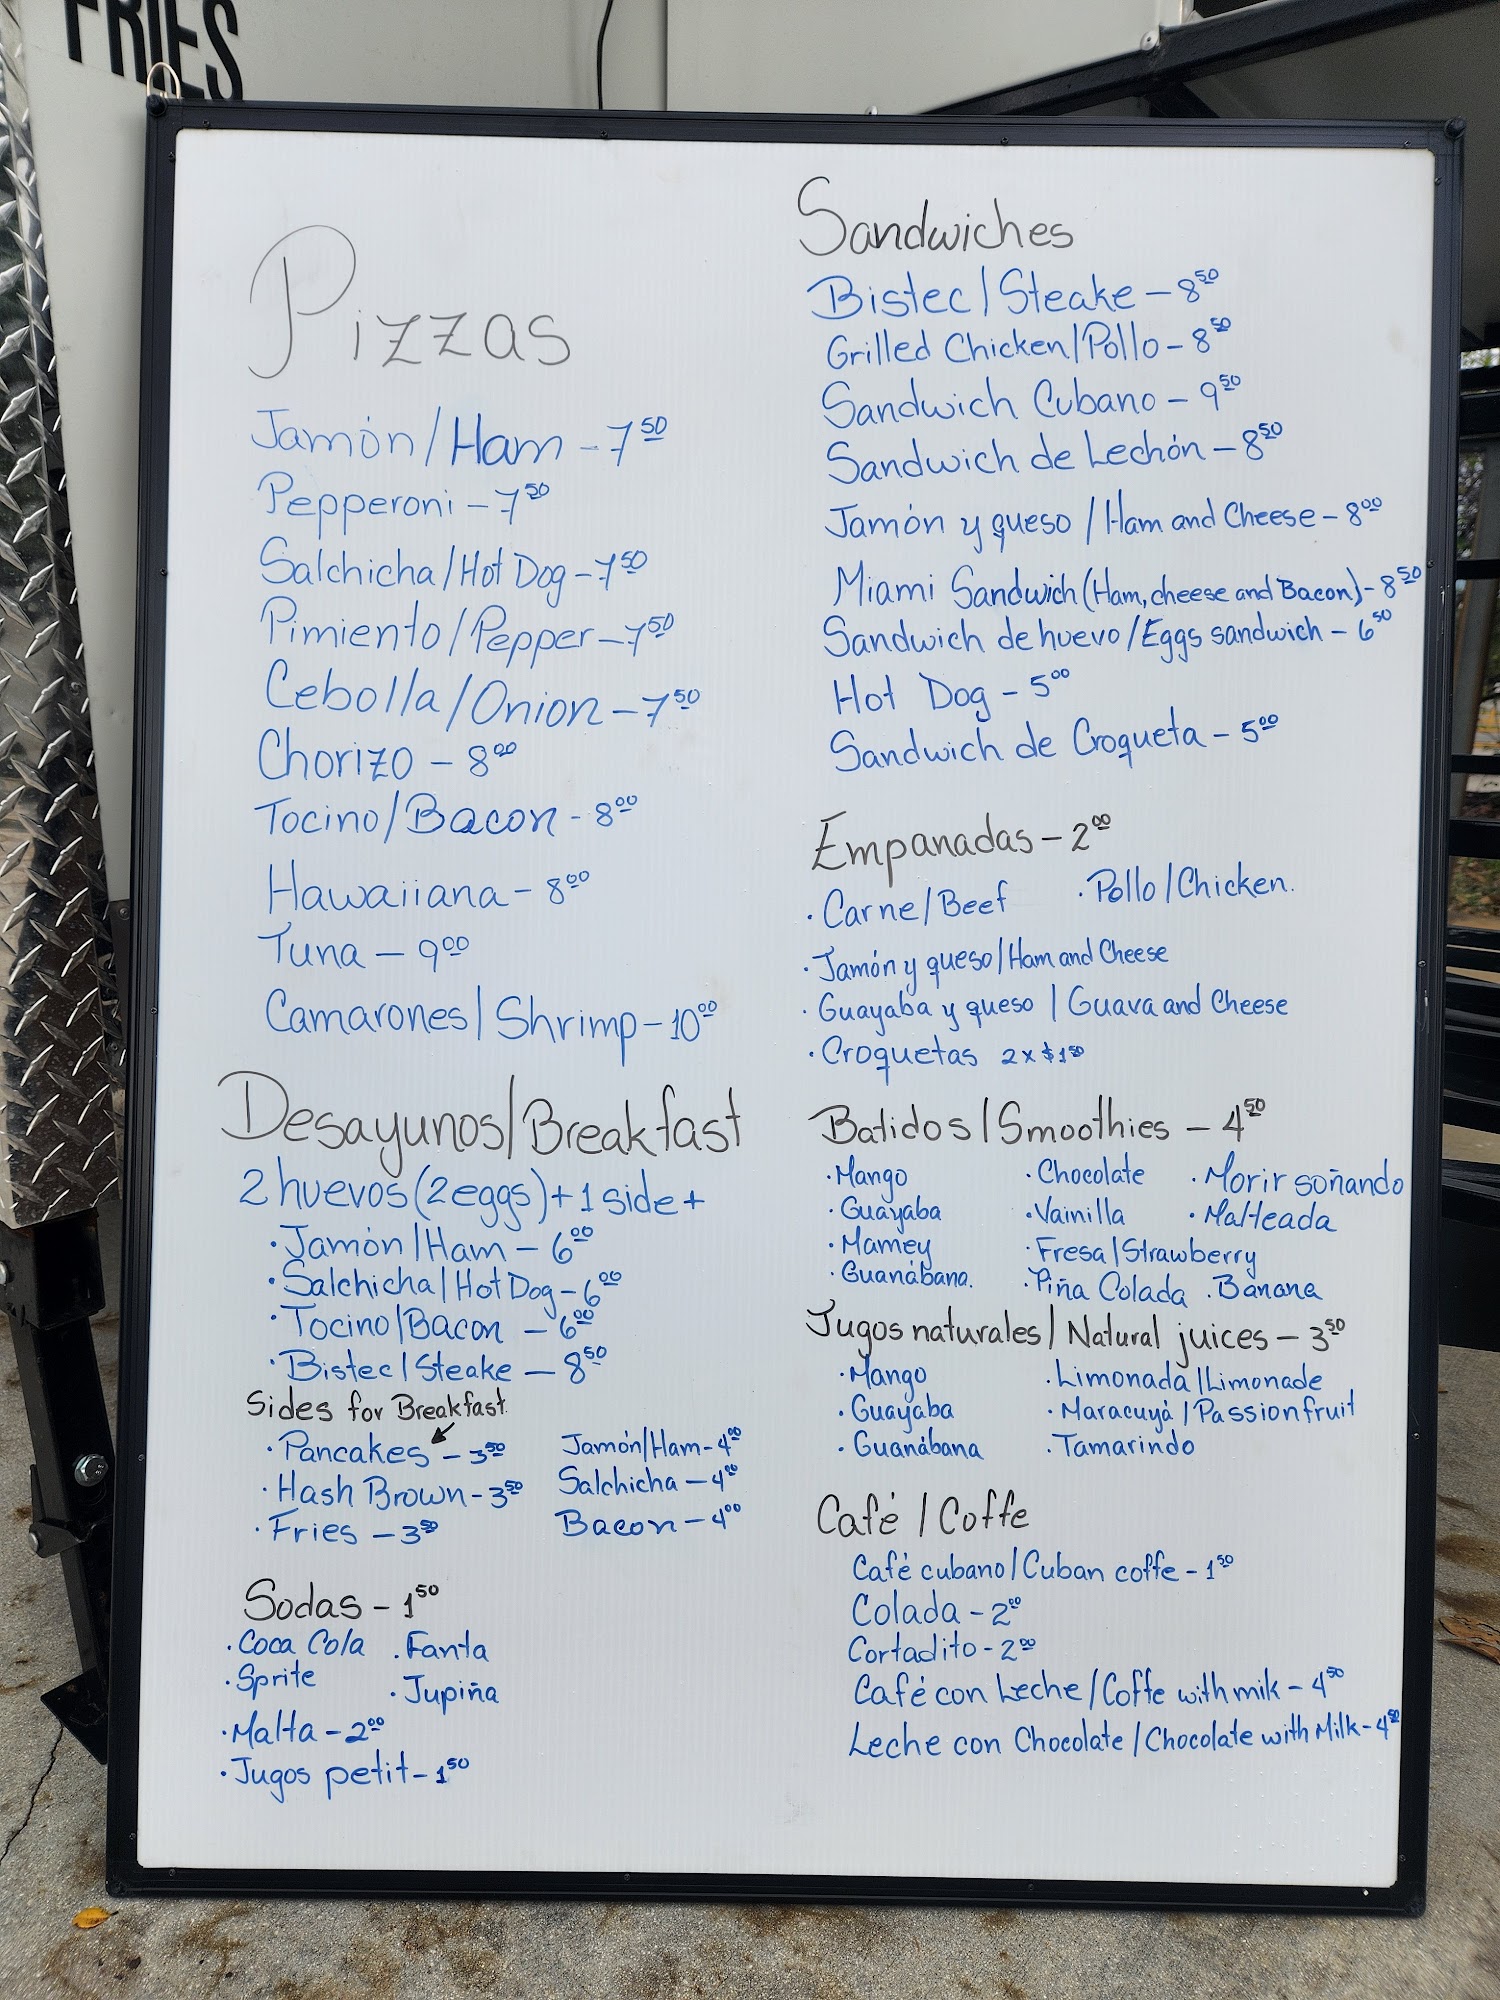 FRIES
Pizzas
Jamón/Ham - 7 50
Pepperoni - 7 50
Salchicha/Hot Dog - 7 50
Pimiento/Pepper - 7 50
Cebolla/Onion - 7 50
Chorizo - 8 00
Tocino/Bacon - 8 00
Hawaiiana - 8 00
Tuna - 9 00
Camarones/Shrimp - 10 00
Desayunos/Breakfast
2 huevos (2 eggs) + 1 side +
· Jamón/Ham - 6 00
· Salchicha/Hot Dog - 6 00
· Tocino/Bacon - 6 00
· Bistec/Steake - 8 50
Sides for Breakfast
· Pancakes - 3 50 Jamón/Ham - 4 00
· Hash Brown - 3 50 Salchicha - 4 00
· Fries - 3 50 Bacon - 4 00
Sodas - 1 50
· Coca Cola · Fanta
· Sprite · Jupiña
· Malta - 2 00
· Jugos petit - 1 50
Sandwiches
Bistec/Steake - 8 50
Grilled Chicken/Pollo - 8 50
Sandwich Cubano - 9 50
Sandwich de Lechón - 8 50
Jamón y queso / Ham and Cheese - 8 00
Miami Sandwich (Ham, cheese and Bacon) - 8 50
Sandwich de huevo/Eggs sandwich - 6 50
Hot Dog - 5 00
Sandwich de Croqueta - 5 00
Empanadas - 2 00
· Carne/Beef · Pollo/Chicken.
· Jamón y queso/Ham and Cheese
· Guayaba y queso / Guava and Cheese
· Croquetas 2 x $1 50
Batidos/Smoothies - 4 50
· Mango · Chocolate · Morir soñando
· Guayaba · Vainilla · Malteada
· Mamey · Fresa/Strawberry
· Guanábana. · Piña Colada · Banana
Jugos naturales/Natural juices - 3 50
· Mango · Limonada/Limonade
· Guayaba · Maracuyá/Passion fruit
· Guanábana · Tamarindo
Café / Coffe
Café cubano/Cuban coffe - 1 50
Colada - 2 00
Cortadito - 2 00
Café con Leche/Coffe with mik - 4 50
Leche con Chocolate/Chocolate with Milk - 4 50